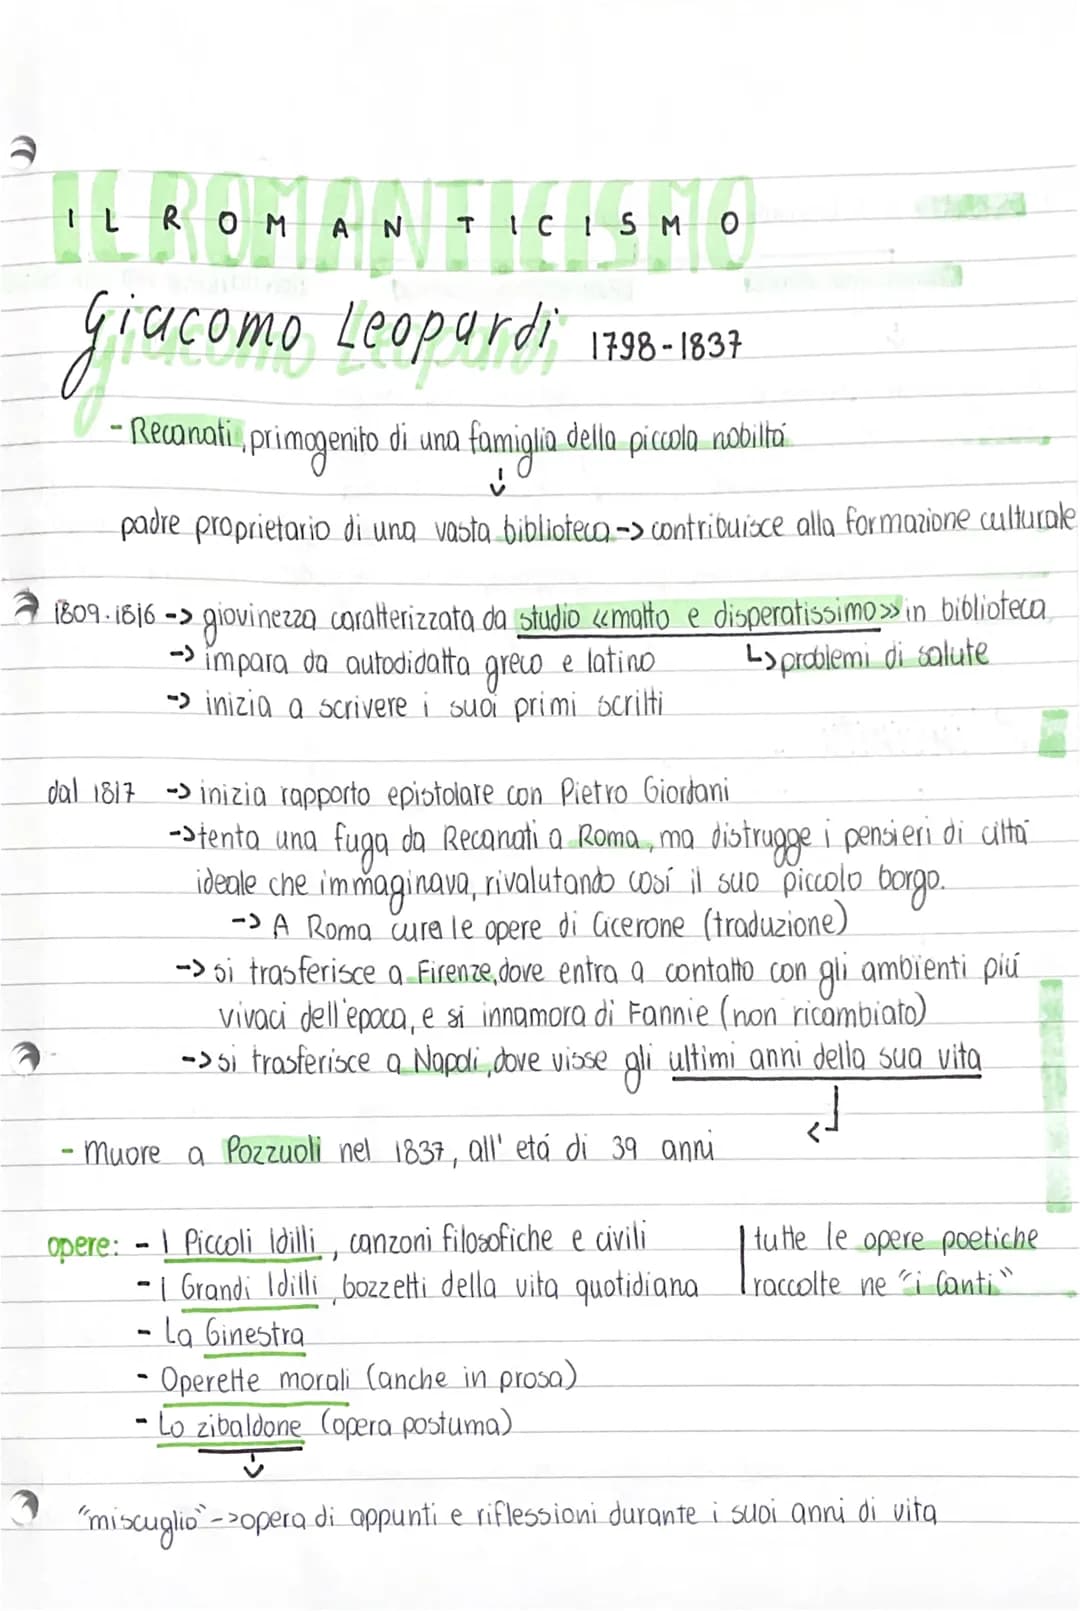 IL ROMANTICISMO
Giacomo Leopardi 1798-1837
- Recanati, primogenito di una famiglia della piccola nobiltá
padre proprietario di una vasta biblioteca -> contribuisce alla formazione culturale
1809-1816 -> giovinezza caratterizzata da studio «matto e disperatissimo» in biblioteca
-> impara da autodidatta greco e latino ↳ problemi di salute
-> inizia a scrivere i suoi primi scritti
dal 1817 -> inizia rapporto epistolare con Pietro Giordani
-> tenta una fuga da Recanati a Roma, ma distrugge i pensieri di cittá
ideale che immaginava, rivalutando cosí il suo piccolo borgo.
-> A Roma cura le opere di Cicerone (traduzione)
-> si trasferisce a Firenze, dove entra a contatto con gli ambienti piú
vivaci dell'epoca, e si innamora di Fannie (non ricambiato)
-> si trasferisce a Napoli, dove visse gli ultimi anni della sua vita
- Muore a Pozzuoli nel 1837, all'etá di 39 anni
opere: - I Piccoli Idilli, canzoni filosofiche e civili | tutte le opere poetiche
- I Grandi Idilli, bozzetti della vita quotidiana | raccolte ne "i Canti"
- La Ginestra
- Operette morali (anche in prosa)
- Lo zibaldone (opera postuma)
"miscuglio" -> opera di appunti e riflessioni durante i suoi anni di vita